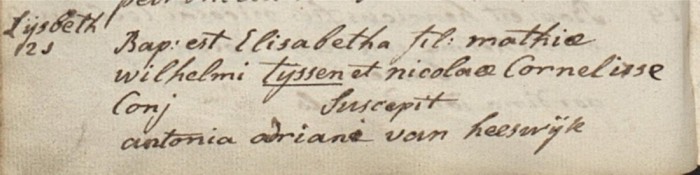 Lijsbeth
21
Bap: est Elisabetha fil: mathiæ
wilhelmi tyssen et nicolaæ Cornelisse
Conj Suscepit
antonia adriani van heeswijk